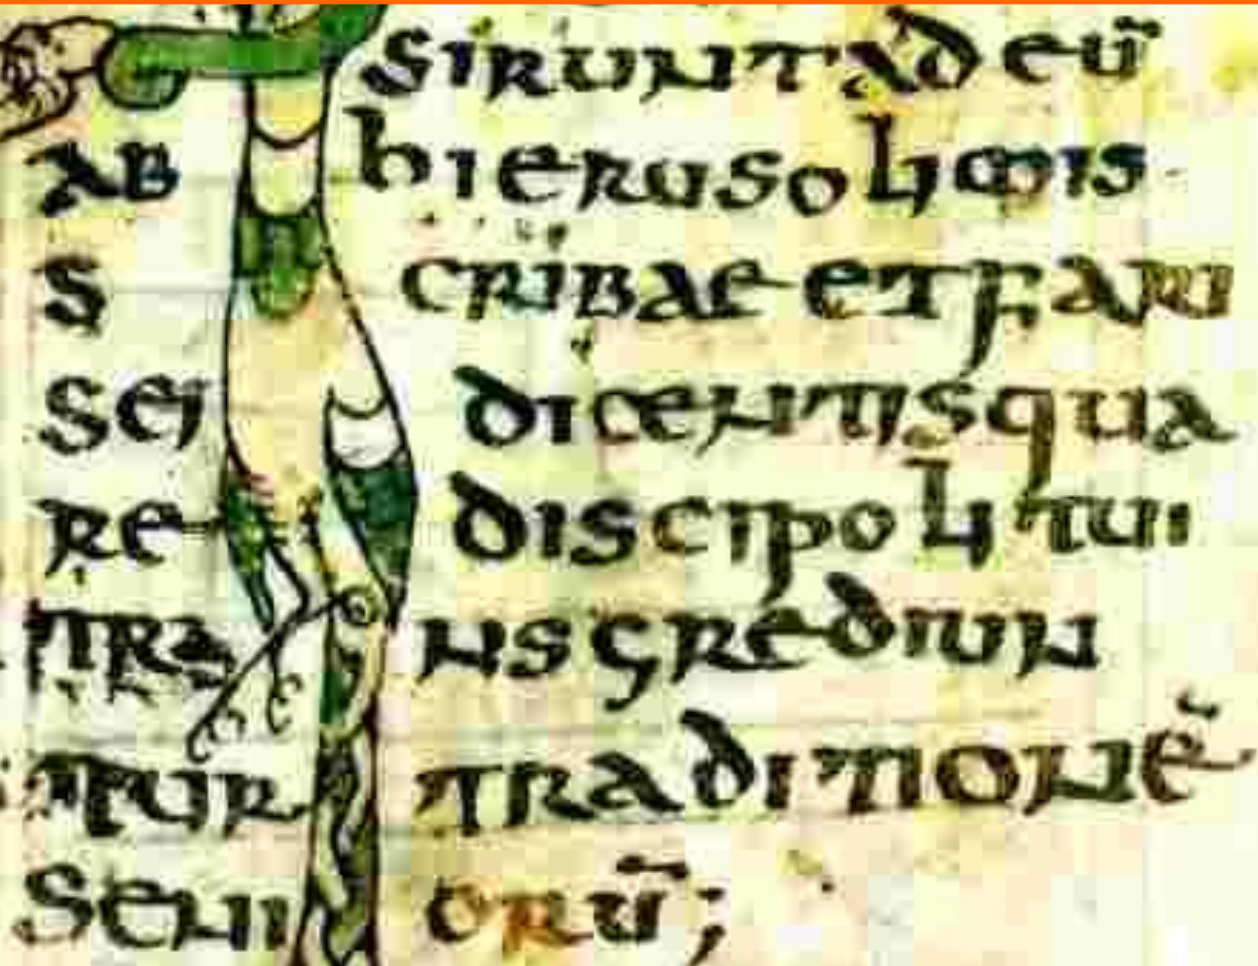 sirunt ad eū
ab hierusolimis
scribae et fari
sei dicentis qua
re discipoli tui
transgrediun
tur traditionē
seniorū;